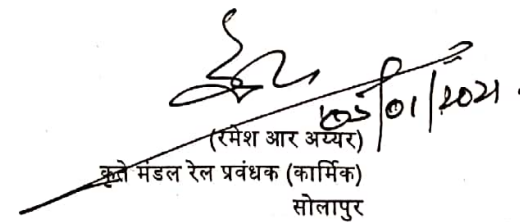 05/01/2021
(रमेश आर अय्यर)
कृते मंडल रेल प्रवंधक (कार्मिक)
सोलापुर